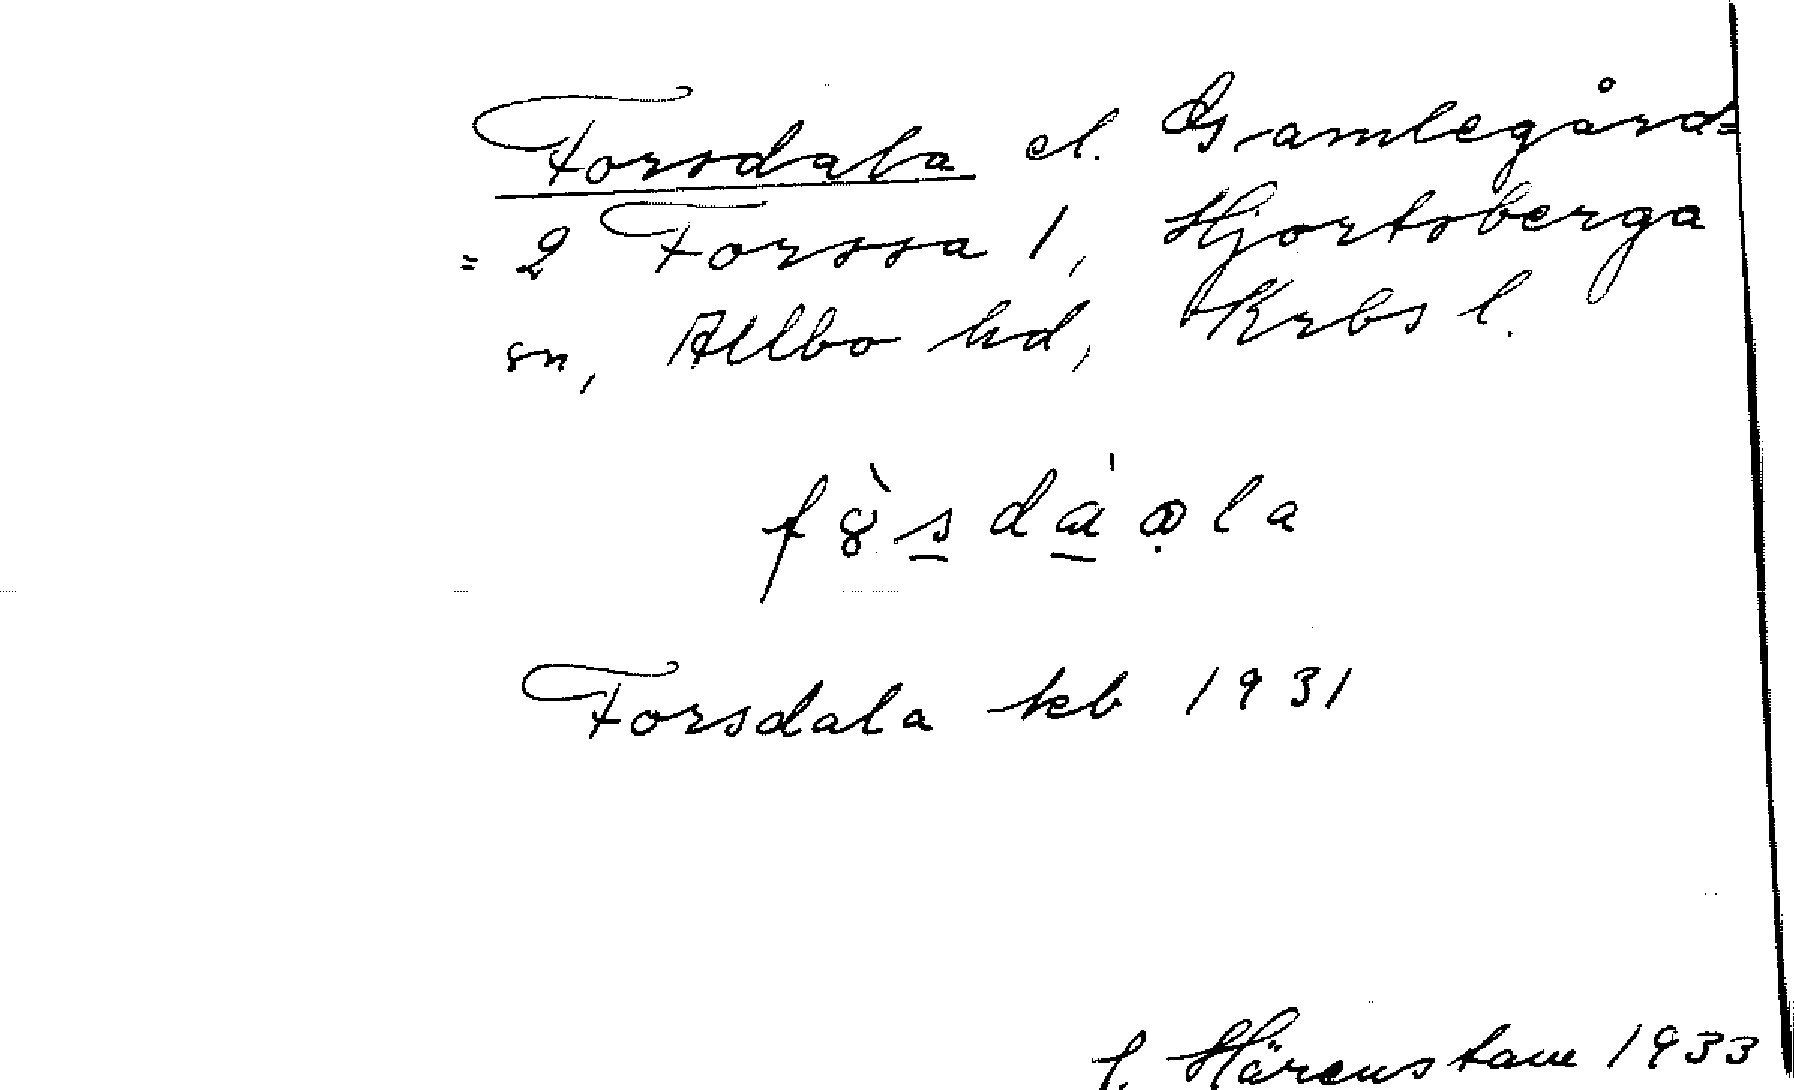 Forsdala el. Gamlegård=
= 2 Forssa 1, Hjortsberga
sn, Allbo hd, Krbs l.
Forsdala kb 1931
Härenstam 1933